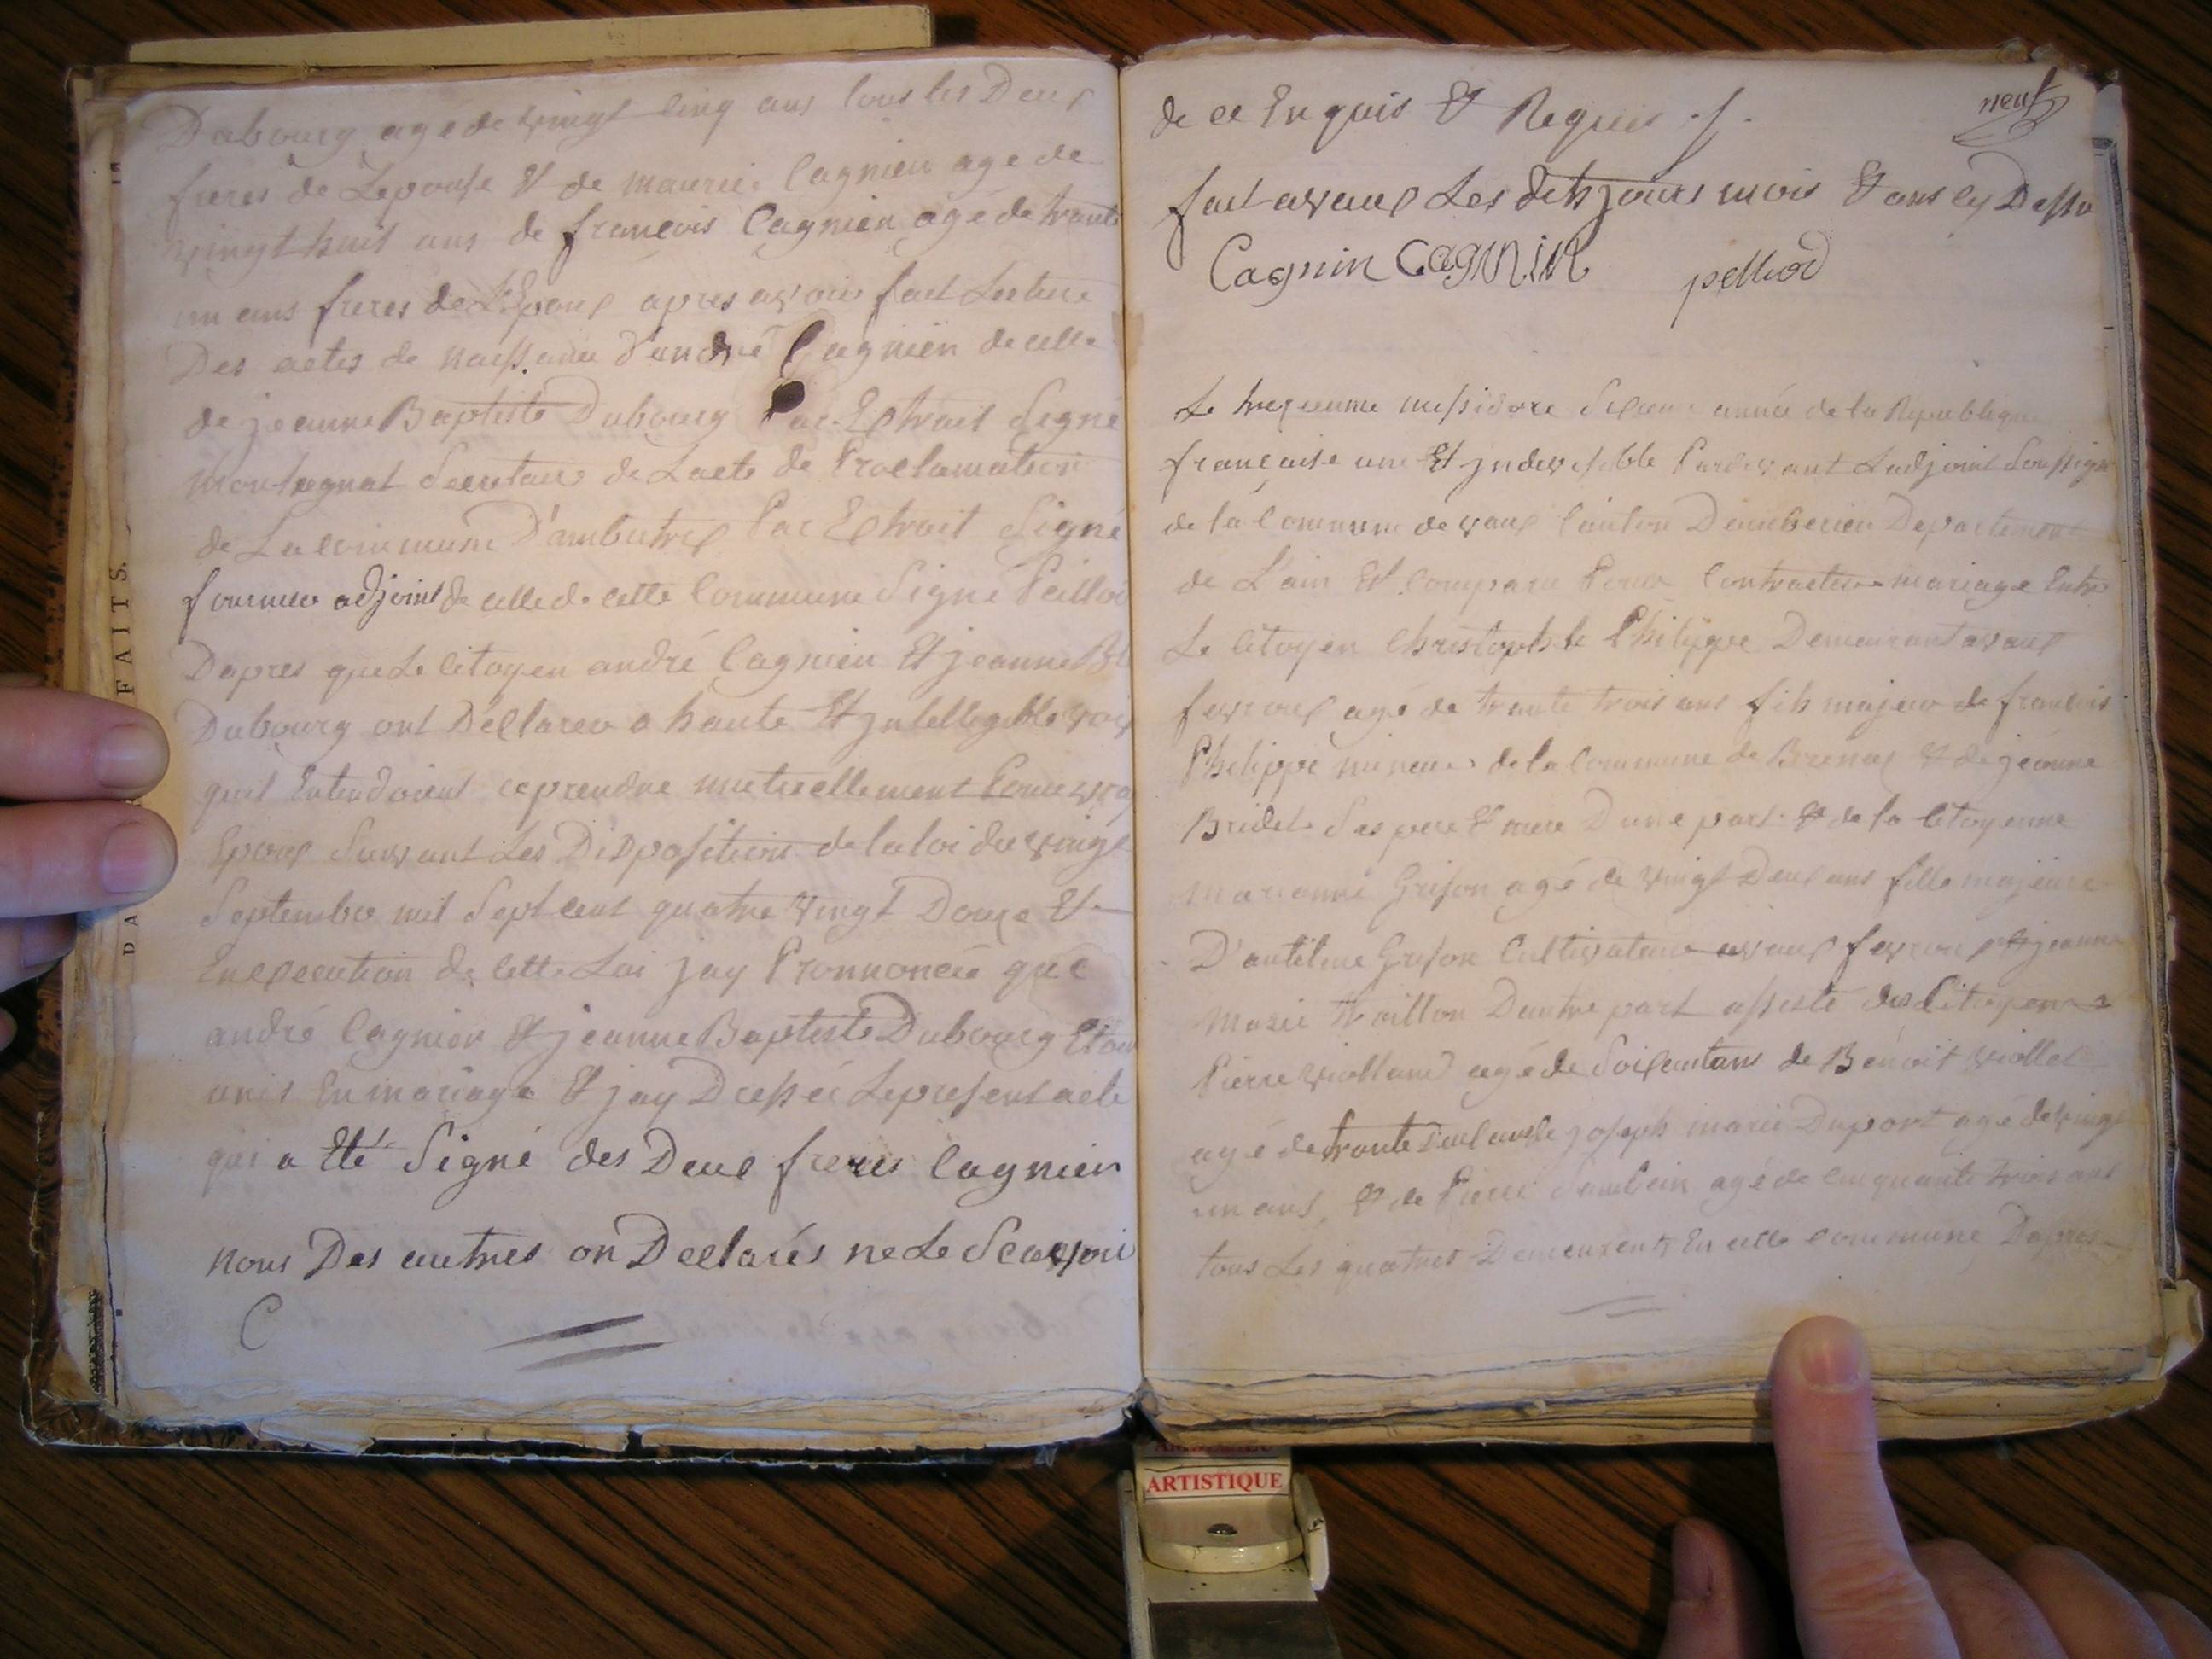 Dubourg agé de vingt cinq ans tous les Deux
freres de Lepouse Et de maurice Cagnien age de
vingt huit ans de françois Cagnien agé de trante
un ans freres de L'Epoux apres avoir fait Lecture
Des actes de naissance d'andré Cagnien de celle
de jeanne Baptiste Dubourg Par Extrait Signé
Montagnat Secretaire de Lacte de Proclamation
de La commune D'ambutrix Par Extrait Signé
fournier adjoint de celle de cette Commune Signé
Dapres que Le Citoyen andré Cagnien Et jeanne Bt
Dubourg ont Déclarer a haute Et jntellegible voix
quil Entendoient ce prendre mutuellement Pour
Epoux Suivant Les Disposition de la loi du vingt
Septembre mil Sept cent quatre vingt Douze Et
En execution de Cette Loi jay Pronnoncée que
andré Cagnien Et jeanne Baptiste Dubourg Etoient
unis En mariage Et jay Dressée Le present acte
qui a Eté Signé des Deux freres Cagnien
nous Des autres on Declarés ne Le Scavoir
de ce Enquis Et Requis ./.
neuf
fait avaux Les dits jours mois Et ans cy Dessu
Cagnin CAGNIN
Le messidore Sixieme année de la Republique
française une Et jndevisible Pardevant Ladjoint Soussigné
de la Commune de vaux Canton Damberieu Departement
de L'ain Et Comparu Pour Contracter mariage Entre
Le Citoyen Christophle Philippe Demeurant avaux
fevroux agé de trante trois ans fils majeur de françois
Philippe mineur de la Commune de Brenas Et de jeanne
Bridet Ses pere Et mere Dune part Et de la Citoyenne
Marianne Grison agé de vingt Deux ans fille majeure
D'antelme Grison Cultivateur avaux fevroux Et jeanne
Marie Dautre part assisté des Citoyens
Pierre violland agé de Soixantans de Benoit viollet
agé de trante Deux ans de joseph marie Duport agé de vingt
un ans, Et de Pierre agé de Cinquante trois ans
tous Les quatres Demeurent En cette commune Dapres
DA FAITS.
ARTISTIQUE